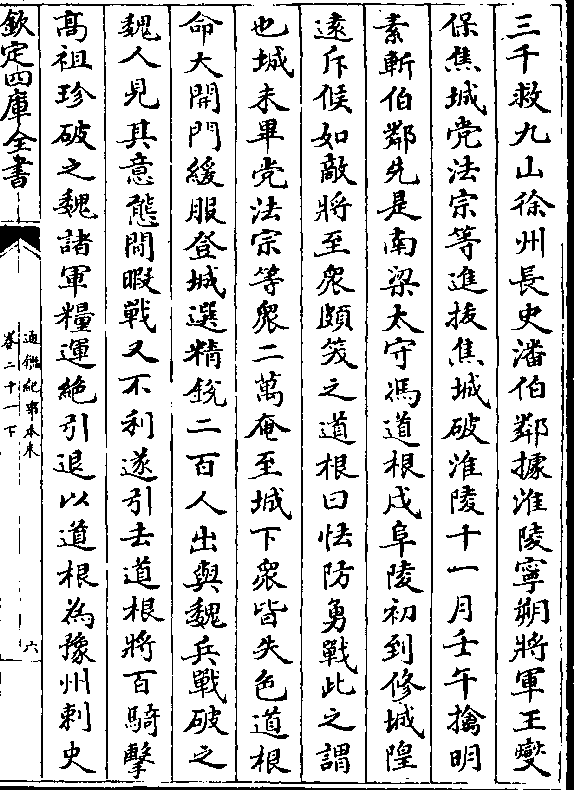 三千救九山徐州長史潘伯鄰據淮陵寧朔將軍王燮
保焦城党法宗等進拔焦城破淮陵十一月壬午擒明
素斬伯鄰先是南梁太守馮道根戍阜陵初到修城隍
遠斥候如敵將至衆頗笑之道根曰怯防勇戰此之謂
也城未畢党法宗等衆二萬奄至城下衆皆失色道根
命大開門緩服登城選精銳二百人出與魏兵戰破之
魏人見其意態閒暇戰又不利遂引去道根將百騎擊
高祖珍破之魏諸軍糧運絶引退以道根為豫州刺史
欽定四庫全書
通鑑紀事本末
卷二十一下
六